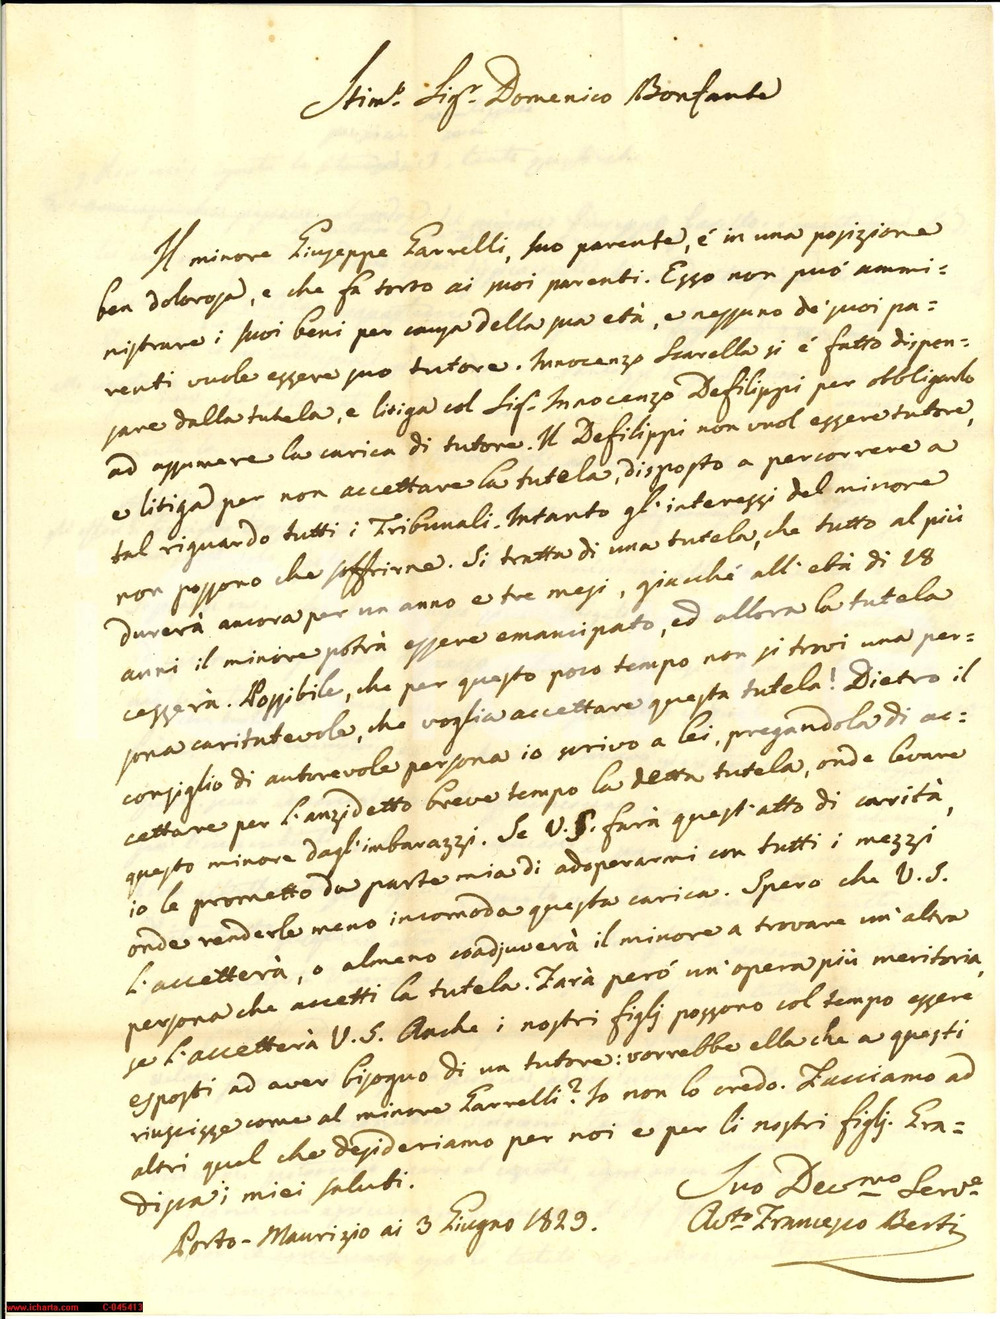 Stim.o Sig.r Domenico Bonfante
Il minore Giuseppe Garrelli, suo parente, é in una posizione
ben dolorosa, e che fa torto ai suoi parenti. Esso non può ammi=
nistrare i suoi beni per causa della sua età, e nessuno de' suoi pa=
renti vuole essere suo tutore. Innocenzo Scarella si é fatto dispen=
sare dalla tutela, e litiga col Sig.r Innocenzo Defilippi per obbligarlo
ad assumere la carica di tutore. Il Defilippi non vuol essere tutore,
e litiga per non accettare la tutela, disposto a percorrere a
tal riguardo tutti i Tribunali. Intanto gl'interessi del minore
non possono che soffrirne. Si tratta di una tutela, che tutto al più
durerà ancora per un anno e tre mesi, giacché all'età di 18
anni il minore potrà essere emancipato, ed allora la tutela
cesserà. Possibile, che per questo poco tempo non si trovi una per=
sona caritatevole, che voglia accettare questa tutela! Dietro il
consiglio di autorevole persona io scrivo a lei, pregandola di ac=
cettare per l'anzidetto breve tempo la detta tutela, onde levare
questo minore dagl'imbarazzi. Se V.S. farà quest'atto di carità,
io le prometto da parte mia di adoperarmi con tutti i mezzi
onde renderle meno incomoda questa carica. Spero che V.S.
l'accetterà, o almeno coadjuverà il minore a trovare un'altra
persona che accetti la tutela. Farà peró un'opera più meritoria,
se l'accetterà V.S. Anche i nostri figlj possono col tempo essere
esposti ad aver bisogno di un tutore: vorrebbe ella che a questi
riuscisse come al minore Garrelli? Io non lo credo. Facciamo ad
altri quel che desideriamo per noi e per li nostri figlj. Gra=
disca i miei saluti.
Suo Dev.mo Serv.e
Porto-Maurizio ai 3 Giugno 1829.
Av.to Francesco Berti
www.icharta.com C-045413